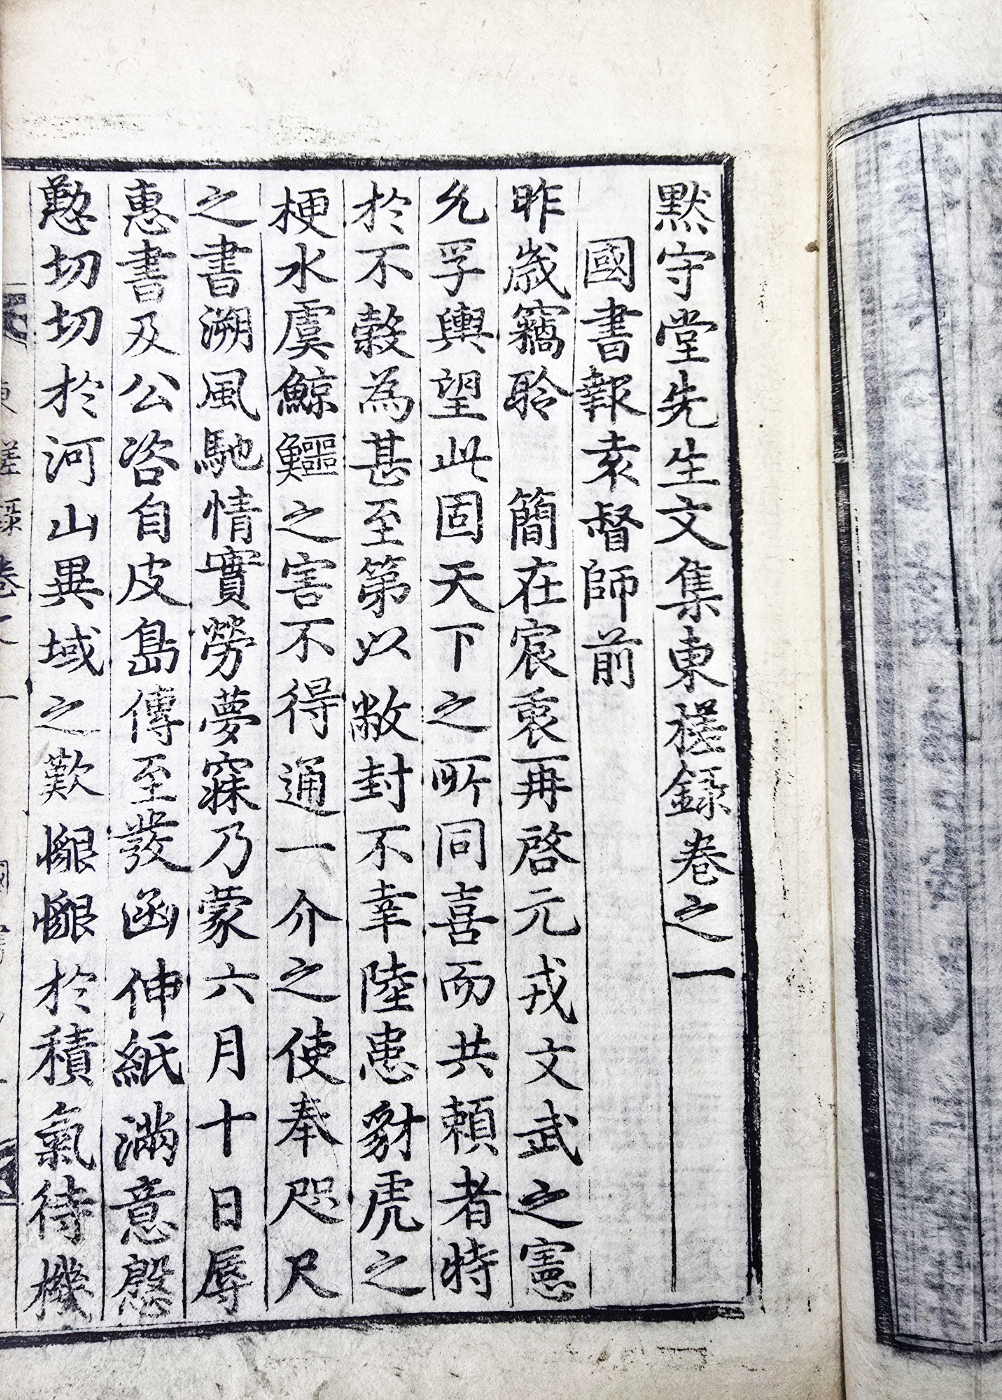 默守堂先生文集東槎錄卷之一
國書報袁督師前
昨歲竊聆 簡在宸衷再啓元戎文武之憲
允孚輿望此固天下之所同喜而共頼者特
於不穀為甚至第以敝封不幸陸患豺虎之
梗水虞鯨鱷之害不得通一介之使奉咫尺
之書溯風馳情實勞夢寐乃蒙六月十日辱
惠書及公咨自皮島傳至發函伸紙滿意慇
懃切切於河山異域之歎懇懇於積氣待機